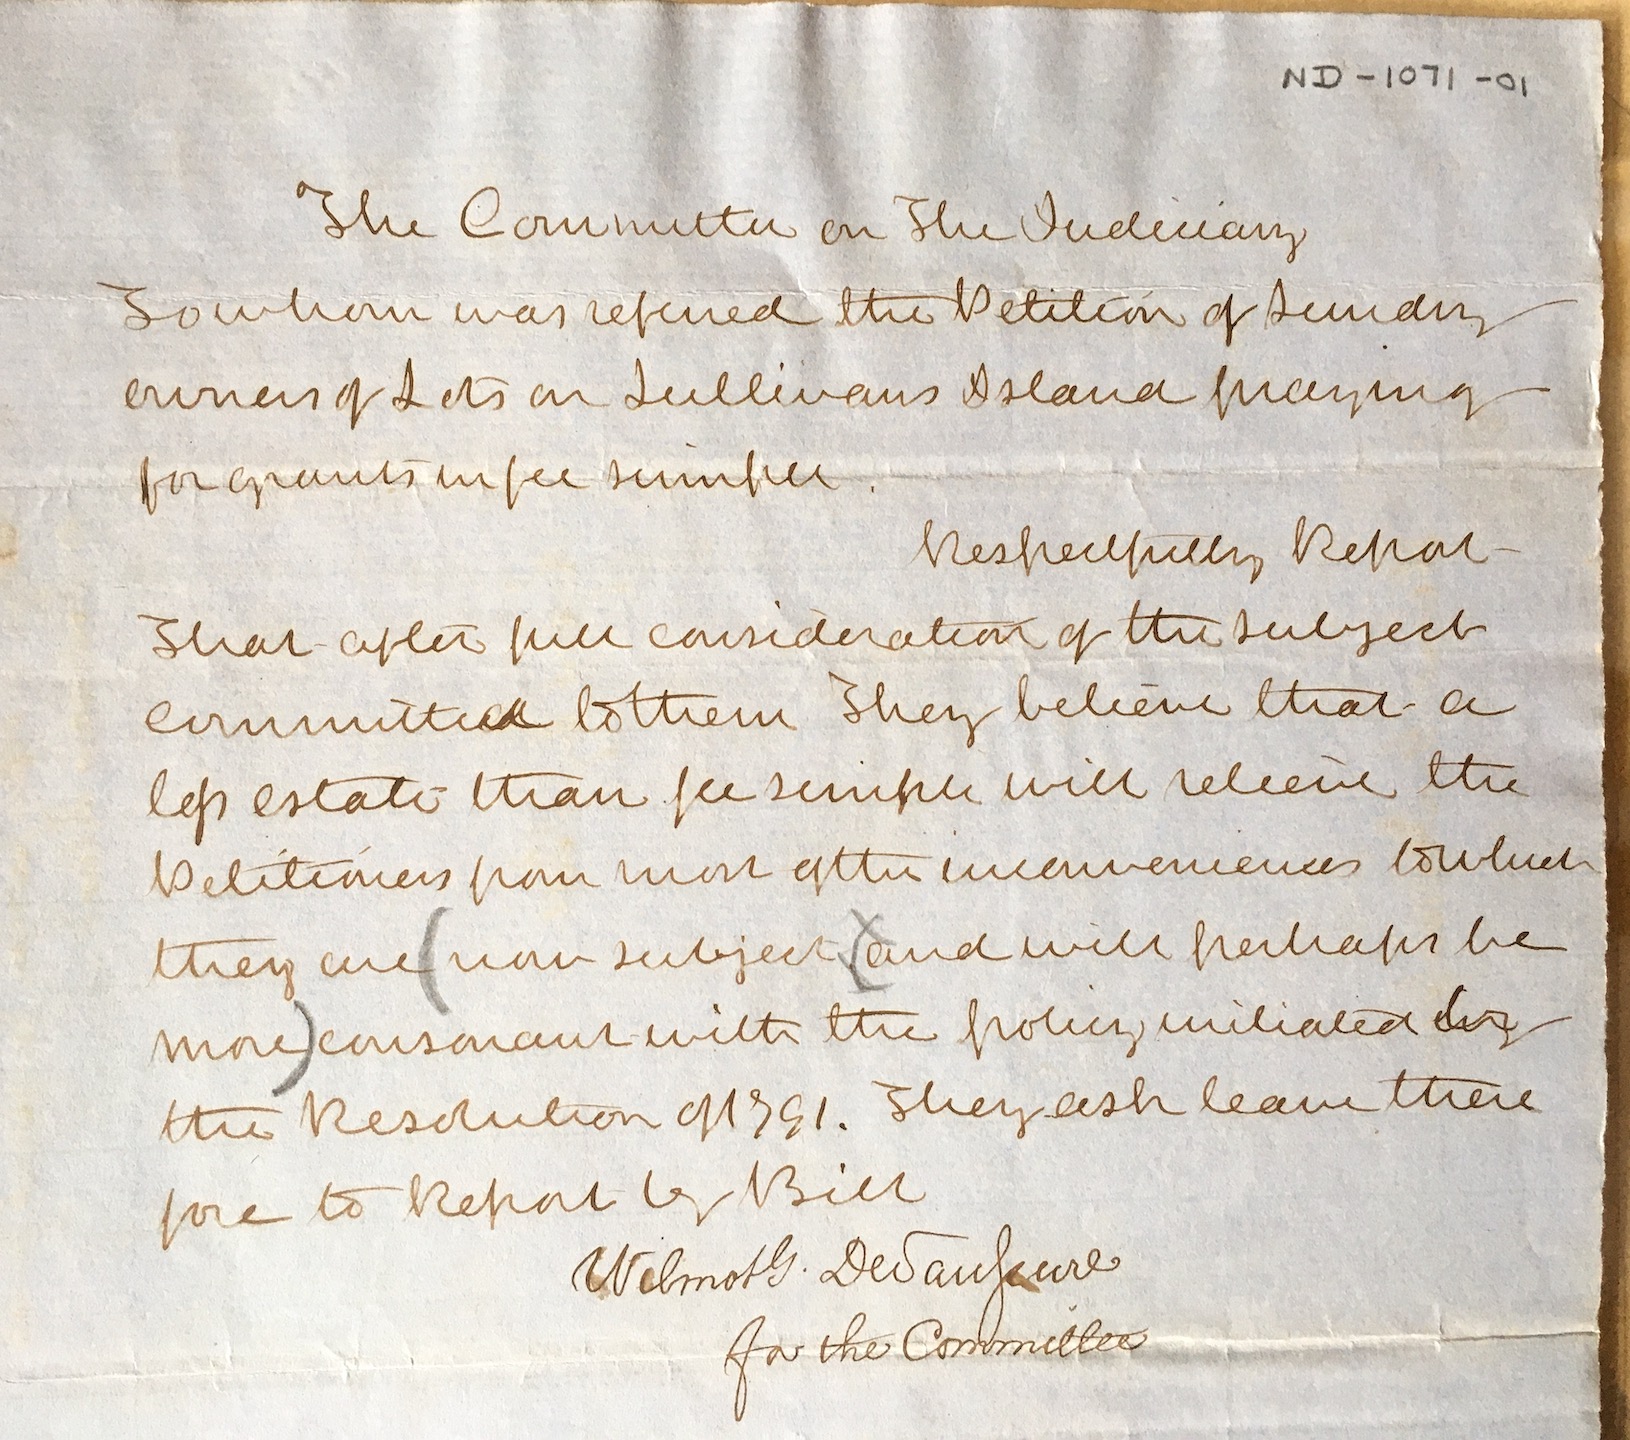 ND-1071-01
The Committee on The Judiciary
To whom was referred the Petition of Sundry
owners of Lots on Sullivans Island praying
for grants in fee simple.
Respectfully Report
That after full consideration of the subject
committed to them They believe that a
less estate than fee simple will relieve the
Petitioners from most of the inconveniences to which
they are (now subject (and will perhaps be
more) consonant with the policy initiated by
the Resolution of 1791. They ask leave there
fore to Report by Bill
Wilmot G. DeSaussure
for the Committee